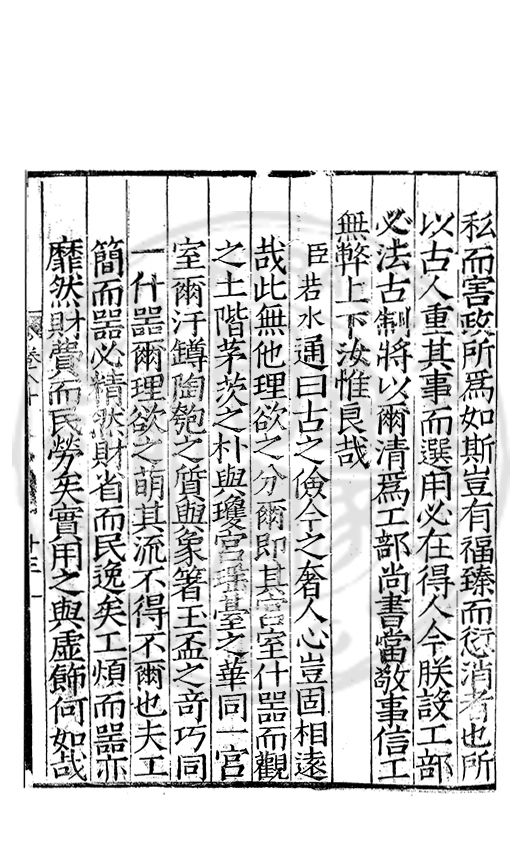 私而害政所爲如斯豈有福臻而愆消者也所
以古人重其事而選用必在得人今朕設工部
必法古制將以爾清爲工部尚書當敬事信工
無弊上下汝惟良哉
臣若水通曰古之儉今之奢人心豈固相遠
哉此無他理欲之分爾即其宮室什噐而觀
之土階茅茨之朴與瓊宮瑤臺之華同一宮
室爾汙罇陶匏之質與象箸玉盃之奇巧同
一什噐爾理欲之萌其流不得不爾也夫工
簡而噐必精然財省而民逸矣工煩而噐亦
靡然財費而民勞矣實用之與虛飾何如哉
卷八十
十三